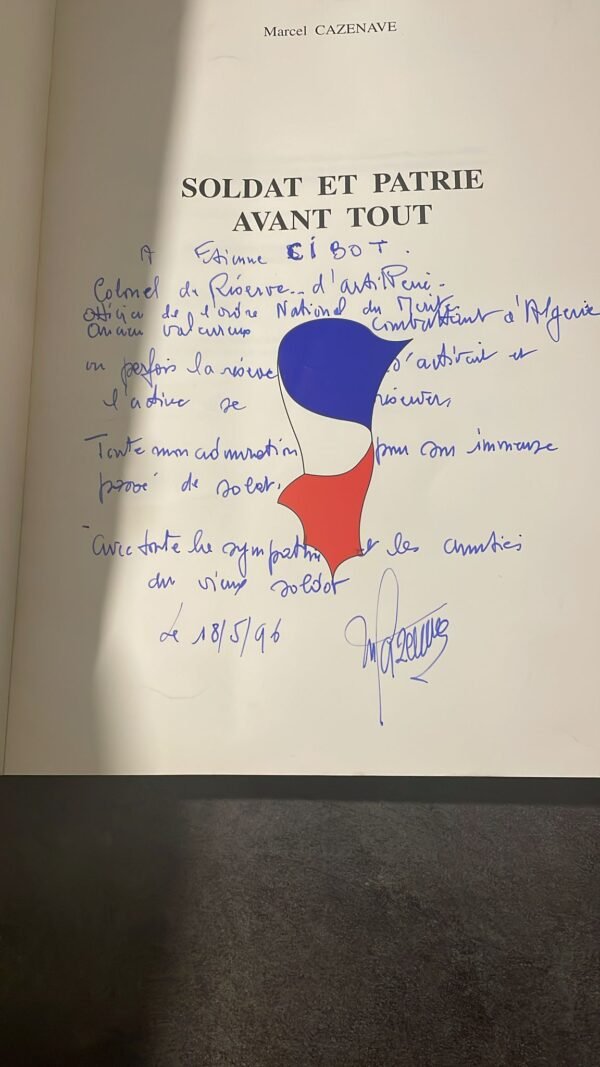 Marcel CAZENAVE
SOLDAT ET PATRIE
AVANT TOUT
A Etienne CIBOT.
Colonel de Réserve.. d'artillerie.
Officier de l'ordre National du Mérite
Ancien valeureux combattant d'Algérie
ou parfois la réserve s'activait et
l'active se réserver,
Toute mon admiration pour son immense
passé de soldat.
avec toute la sympathie et les amitiés
du vieux soldat
Le 18/5/96
MCazenave